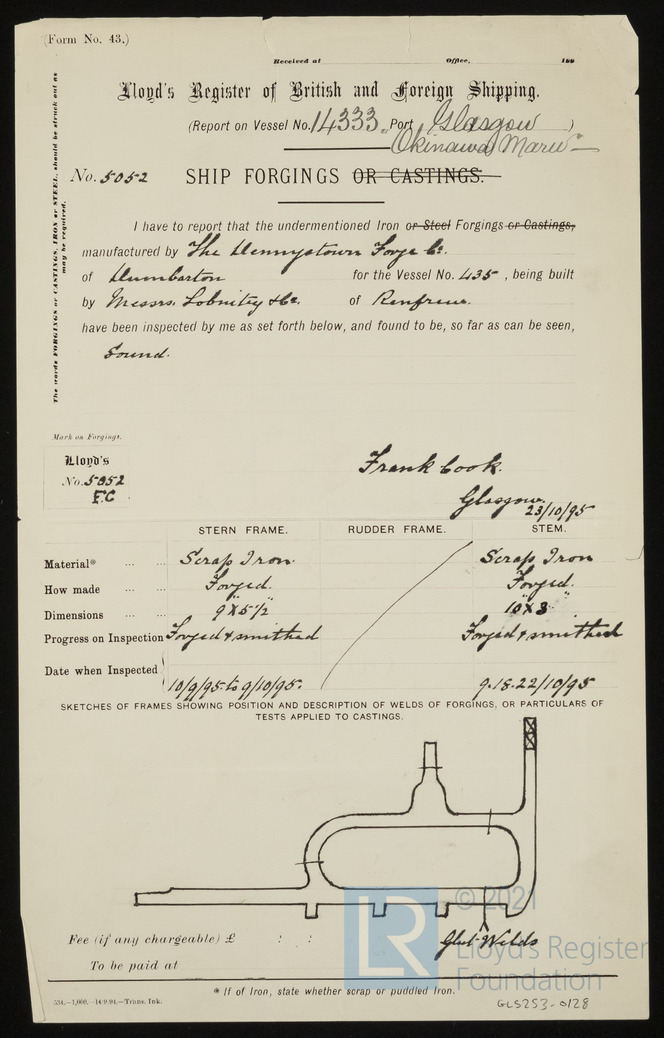 (Form No. 43.)
Received at Office, 189
Lloyd's Register of British and Foreign Shipping.
(Report on Vessel No. 14333, Port Glasgow )
Okinawa Maru
No. 5052 SHIP FORGINGS OR CASTINGS.
The words FORGINGS or CASTINGS, IRON or STEEL, should be struck out as
may be required.
I have to report that the undermentioned Iron or Steel Forgings or Castings,
manufactured by The Dennystown Forge Co.
of Dumbarton for the Vessel No. 435, being built
by Messrs. Lobnitz & Co. of Renfrew.
have been inspected by me as set forth below, and found to be, so far as can be seen,
Sound.
Mark on Forgings.
Lloyd's
No. 5052
F.C
Frank Cook.
Glasgow.
23/10/95
STERN FRAME. RUDDER FRAME. STEM.
Material* ... ... Scrap Iron. Scrap Iron
How made ... ... Forged. Forged.
Dimensions ... ... 9" x 5 1/2" 10" x 3"
Progress on Inspection Forged & smithed Forged & smithed
Date when Inspected 10/9/95 to 9/10/95. 9.18.22/10/95
SKETCHES OF FRAMES SHOWING POSITION AND DESCRIPTION OF WELDS OF FORGINGS, OR PARTICULARS OF
TESTS APPLIED TO CASTINGS.
Glut Welds
Fee (if any chargeable) £ : :
To be paid at
* If of Iron, state whether scrap or puddled Iron.
534.—1,000.—14/9/94.—Trans. Ink.
GLS253-0128
LR
© 2021
Lloyd's Register
Foundation